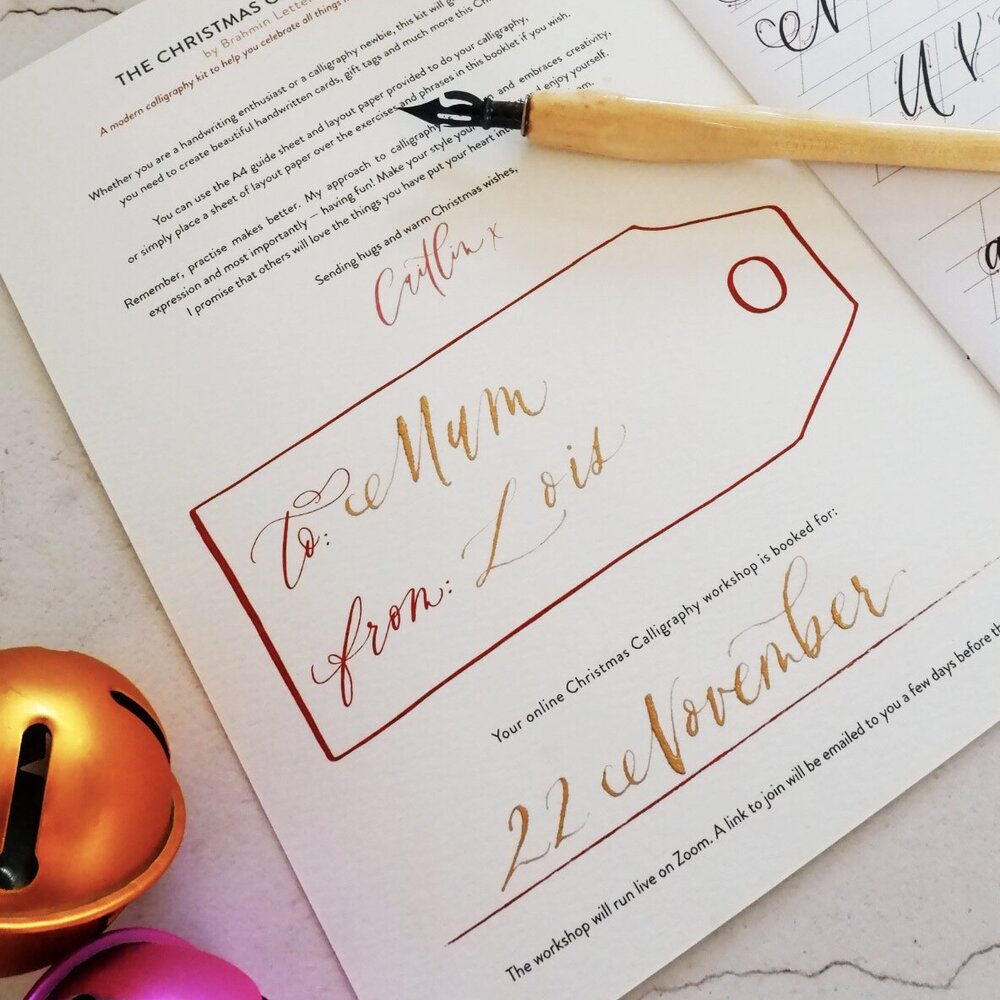 THE CHRISTMAS
by Brahmin Letter
A modern calligraphy kit to help you celebrate all things
Whether you are a handwriting enthusiast or a calligraphy newbie, this kit will
you need to create beautiful handwritten cards, gift tags and much more this
You can use the A4 guide sheet and layout paper provided to do your calligraphy,
or simply place a sheet of layout paper over the exercises and phrases in this booklet if you wish.
Remember, practise makes better. My approach to calligraphy and embraces creativity,
expression and most importantly – having fun! Make your style your and enjoy yourself.
I promise that others will love the things you have put your heart
Sending hugs and warm Christmas wishes,
Caitlin x
To: Mum
from: Lois
Your online Christmas Calligraphy workshop is booked for:
22 November
The workshop will run live on Zoom. A link to join will be emailed to you a few days before
N
U V
a